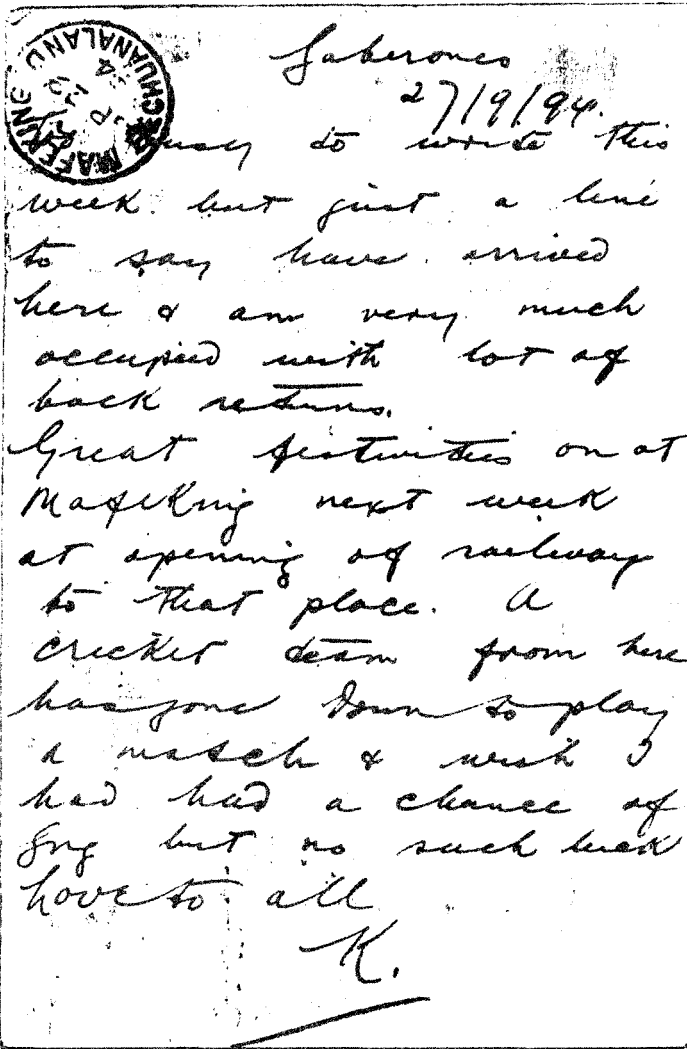 Gaberones
27/9/94.
MAFEKING BECHUANALAND
busy to write this
week but just a line
to say have arrived
here & am very much
occupied with lot of
back returns.
Great festivities on at
Mafeking next week
at opening of railway
to that place. A
cricket team from here
has gone down to play
a match & wish I
had had a chance of
going but no such luck
Love to all
K.